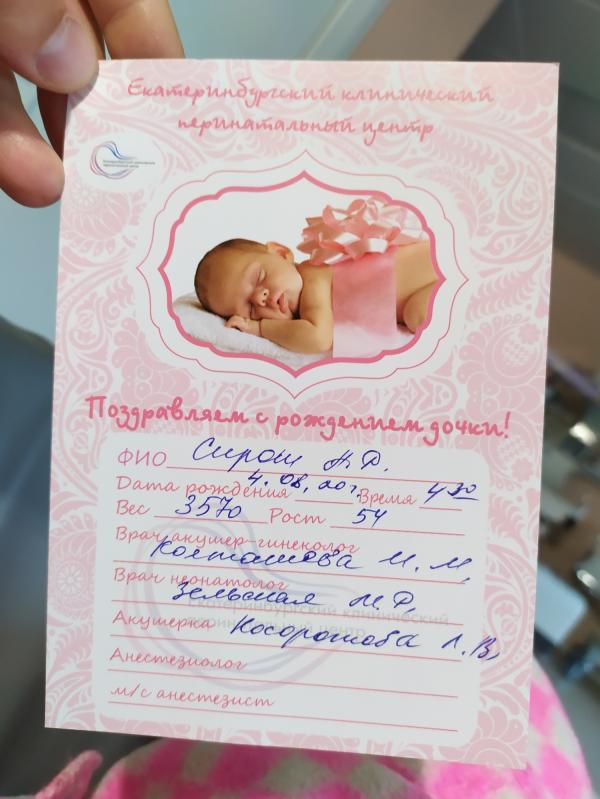 Екатеринбургский клинический
перинатальный центр
Поздравляем с рождением дочки!
ФИО Сирош Н.Ф.
Дата рождения 4.08.20г. Время 4 30
Вес 3570 Рост 54
Врач акушер-гинеколог
Колташова И. М.
Врач неонатолог
Зельская М.Ф.
Екатеринбургский клинический
перинатальный центр
Акушерка Косоротова Л.В.
Анестезиолог
м/с анестезист